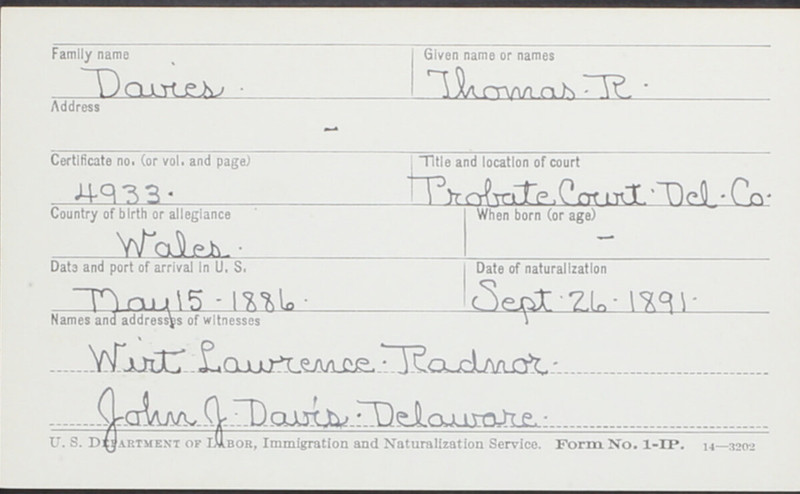 Family name Given name or names
Davies. Thomas. R.
Address
-
Certificate no. (or vol. and page) Title and location of court
4933. Probate Court. Del. Co.
Country of birth or allegiance When born (or age)
Wales. -
Date and port of arrival in U. S. Date of naturalization
May 15 - 1886. Sept. 26. 1891.
Names and addresses of witnesses
Wirt Lawrence. Radnor.
John J. Davis. Delaware.
U. S. DEPARTMENT OF LABOR, Immigration and Naturalization Service. Form No. 1-IP. 14—3202